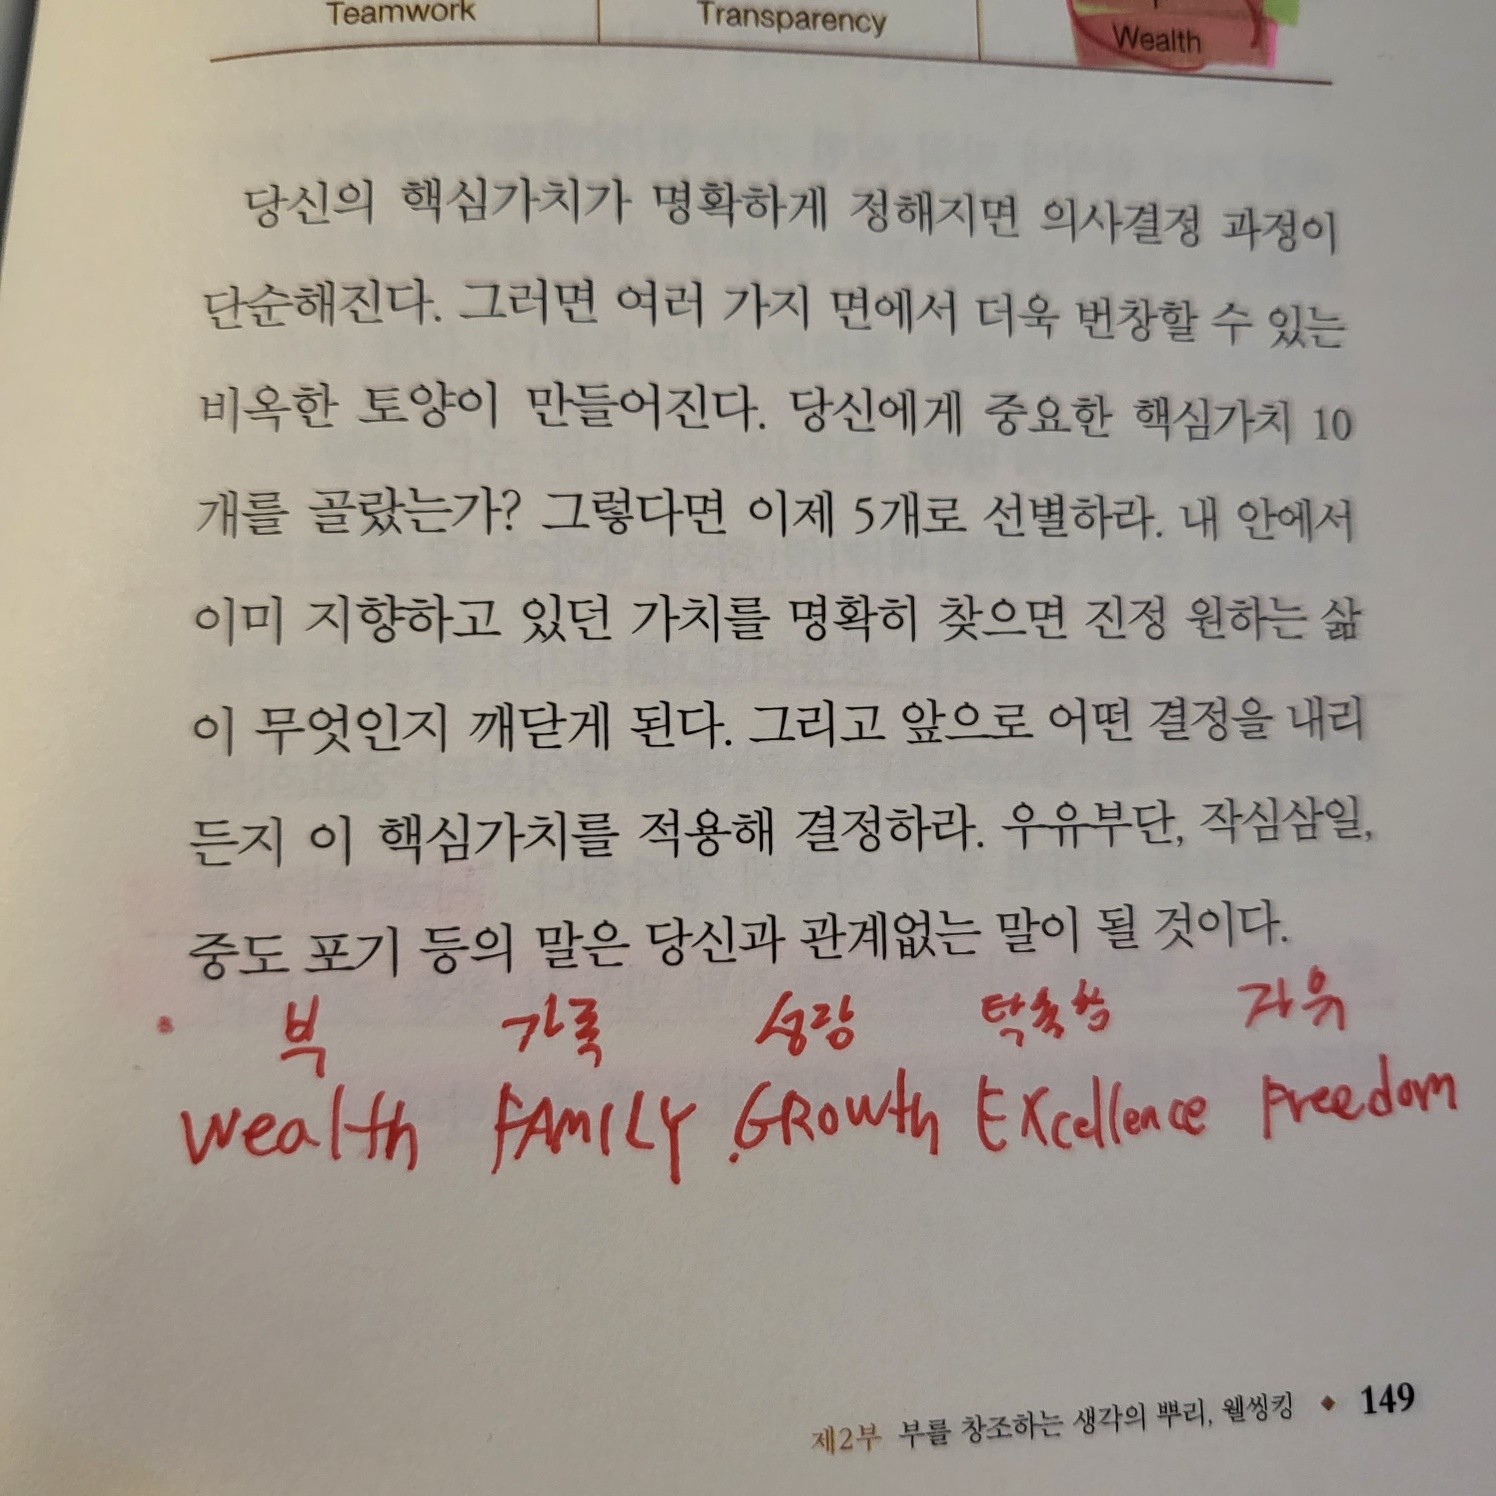 Teamwork Transparency Wealth
당신의 핵심가치가 명확하게 정해지면 의사결정 과정이
단순해진다. 그러면 여러 가지 면에서 더욱 번창할 수 있는
비옥한 토양이 만들어진다. 당신에게 중요한 핵심가치 10
개를 골랐는가? 그렇다면 이제 5개로 선별하라. 내 안에서
이미 지향하고 있던 가치를 명확히 찾으면 진정 원하는 삶
이 무엇인지 깨닫게 된다. 그리고 앞으로 어떤 결정을 내리
든지 이 핵심가치를 적용해 결정하라. 우유부단, 작심삼일,
중도 포기 등의 말은 당신과 관계없는 말이 될 것이다.
부 가족 성장 탁월함 자유
Wealth FAMILY GROWth EXcellence Freedom
제2부 부를 창조하는 생각의 뿌리, 웰씽킹 ◆ 149